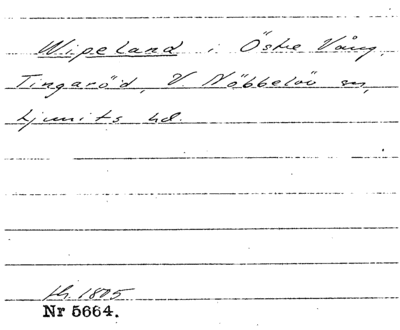 Wipeland i Östre Vång,
Tingaröd, V. Nöbbelöv sn,
Ljunits hd.
Nr 5664.